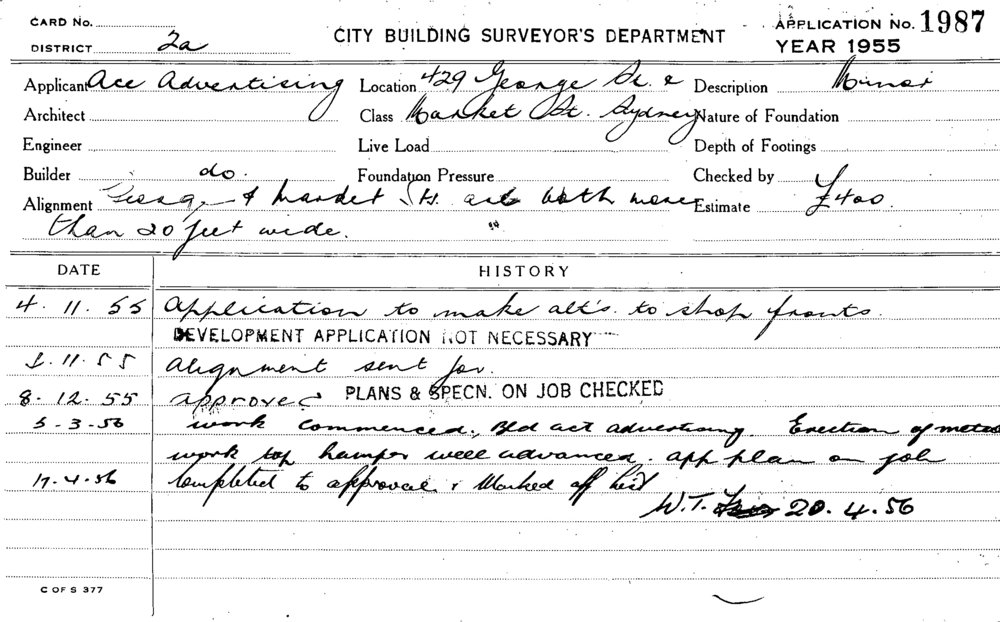 CARD No. APPLICATION No. 1987
DISTRICT 2a CITY BUILDING SURVEYOR'S DEPARTMENT YEAR 1955
Applicant Ace Advertising Location 429 George St. & Description Minor
Architect Class Market St. Sydney Nature of Foundation
Engineer Live Load Depth of Footings
Builder do. Foundation Pressure Checked by
Alignment George & Market Sts. are both more Estimate £400
than 20 feet wide.
DATE HISTORY
4. 11. 55 Application to make alt's. to shop fronts.
DEVELOPMENT APPLICATION NOT NECESSARY
11. 55 Alignment sent for.
8. 12. 55 approved PLANS & SPECN. ON JOB CHECKED
5-3-56 work commenced. Bld act advertising. Erection of metal
work top hamper well advanced. app plan on job
17.4.56 Completed to approval & Marked off
W.T. 20.4.56
C OF S 377